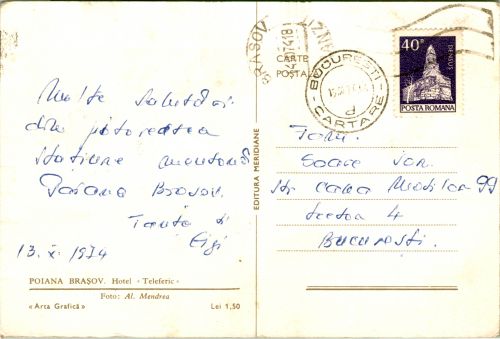 Multe salutări
din pitoreasca
stațiune montană
Poiana Brașov.
Tanța și
Gigi
13.X.1974
POIANA BRAȘOV. Hotel «Teleferic»
Foto: Al. Mendrea
«Arta Grafică» Lei 1,50
EDITURA MERIDIANE
BRASOV
CARTE
POSTALA
BUCURESTI
CARTARE
d
40B
DENSUS
POSTA ROMANA
Fam.
Soare Ion.
Str Calea Moșilor 99
Sector 4
București.